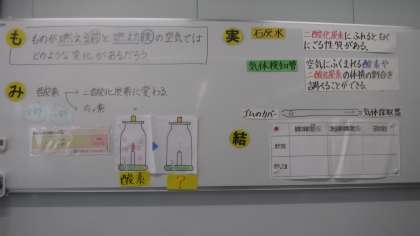 も ものが燃える前と燃えた後の空気では
どのような変化があるだろう
み 酸素→二酸化炭素に変わる
酸素
?
実 石灰水 二酸化炭素にふれると白く
にごる性質がある。
気体検知管 空気にふくまれる酸素や
二酸化炭素の体積の割合を
調べることができる。
ゴムのカバー 気体採取器
結